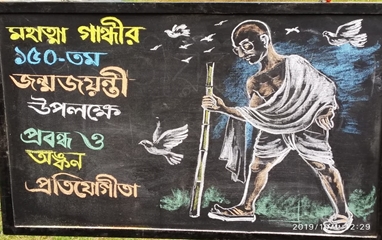 মহাত্মা গান্ধীর
১৫০-তম
জন্মজয়ন্তী
উপলক্ষে
প্রবন্ধ ও
অঙ্কন
প্রতিযোগীতা